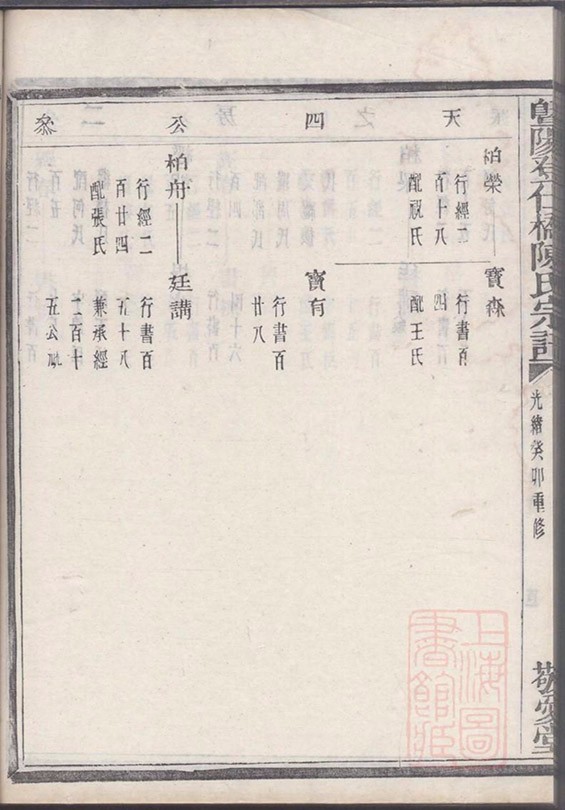 暨陽登仁橋陳氏宗譜
光緒癸卯重修
敬愛堂
天四公
柏榮
行經二
百十八
配祝氏
寶森
行書百
四
配王氏
寶有
行書百
廿八
柏舟
行經二
百廿四
配張氏
廷講
行書百
五十八
兼承經
二百十
五公祧
上海圖書館藏